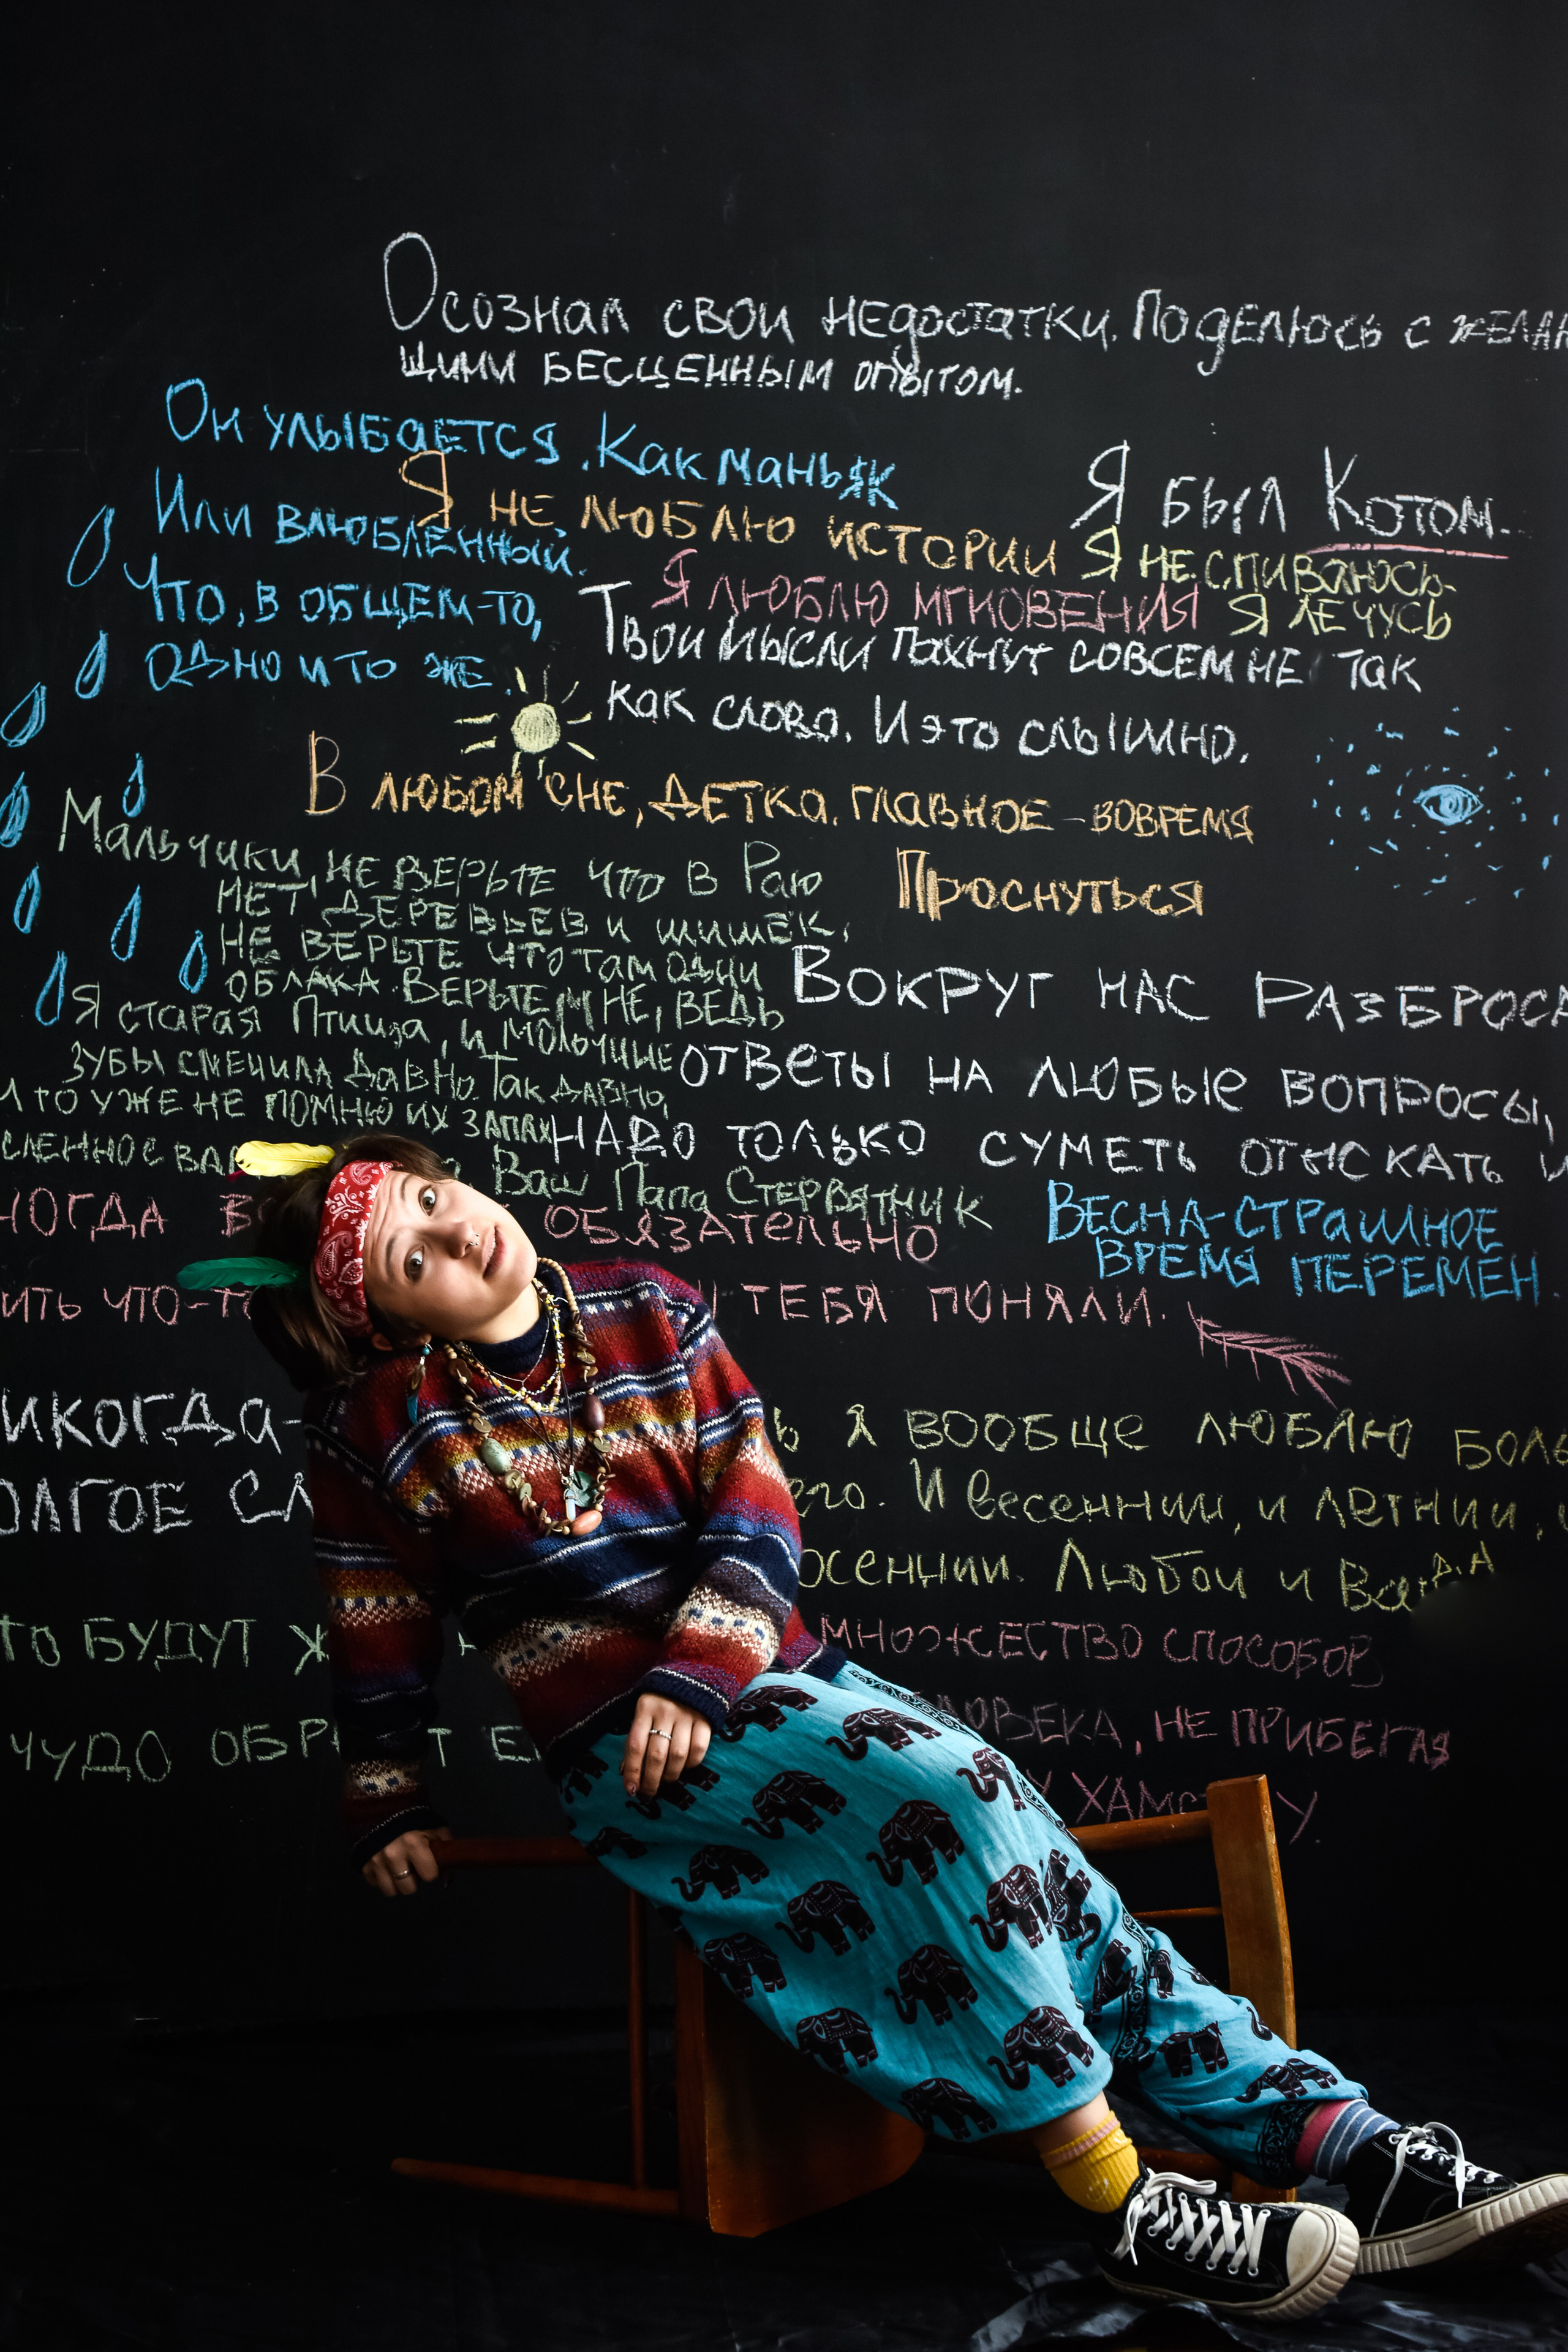 Осознал свои недостатки. Поделюсь с желаю
щими бесценным опытом.
Он улыбается. Как маньяк
Или влюбленный.
Что, в общем-то,
Одно и то же.
Я не люблю истории
Я люблю мгновения
Я был Котом.
Я не спиваюсь-
Я лечусь
Твои мысли пахнут совсем не так
как слова. И это слышно.
В любом сне, детка, главное - вовремя
Проснуться
Мальчики, не верьте что в Раю
нет деревьев и шишек,
не верьте что там одни
облака. Верьте мне, ведь
Я старая Птица, и молочные
зубы сменила давно. Так давно,
что уже не помню их запах
Ваш Папа Стервятник
Вокруг нас разброса
ответы на любые вопросы,
надо только суметь отыскать и
Весна-страшное
время перемен.
обязательно
ить что-т
тебя поняли.
икогда-
олгое сл
я вообще люблю бол
его. И весенний, и летний,
осенний. Любой и
то будут ж
чудо обр т е
множество способов
овека, не прибегая